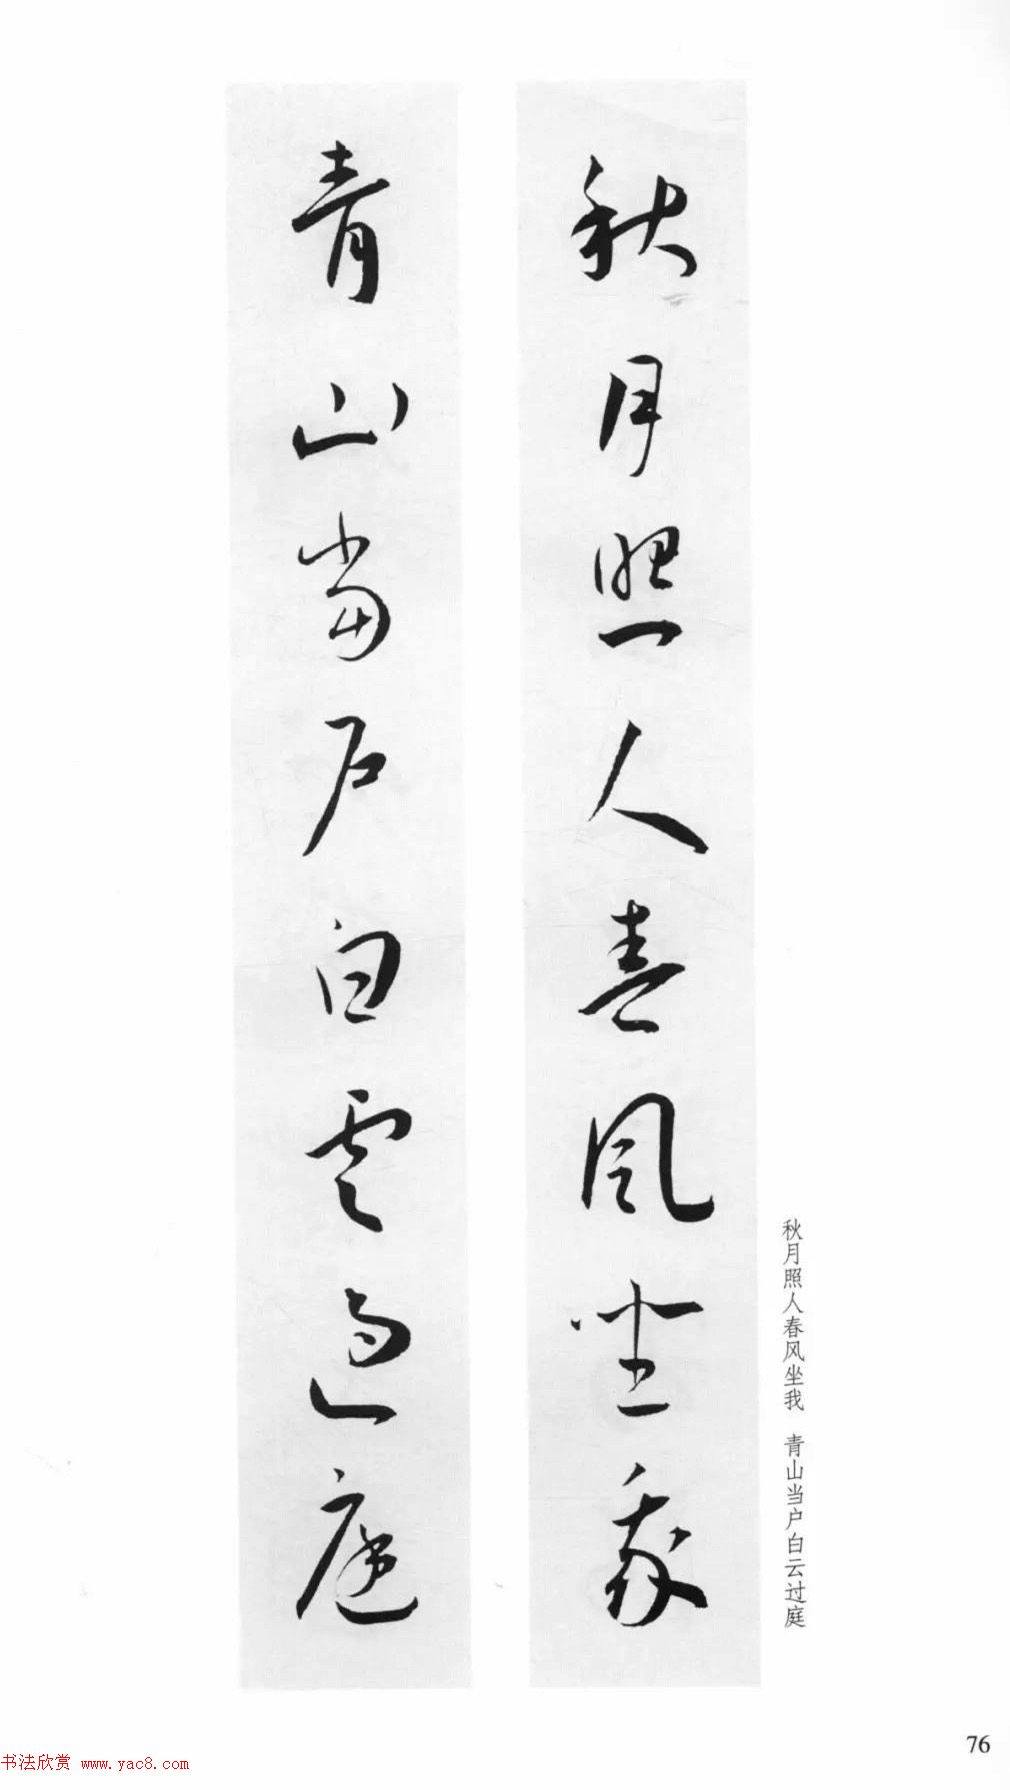 秋月照人春風坐我
青山當戶白雲過庭
秋月照人春风坐我 青山当户白云过庭
76
书法欣赏 www.yac8.com